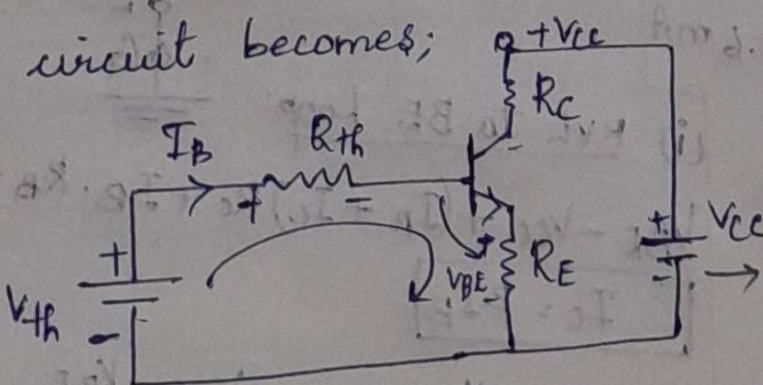 circuit becomes;
+Vcc
RC
IB
Rth
+
-
-
+
Vth
-
VBE
+
-
RE
+
-
VCC